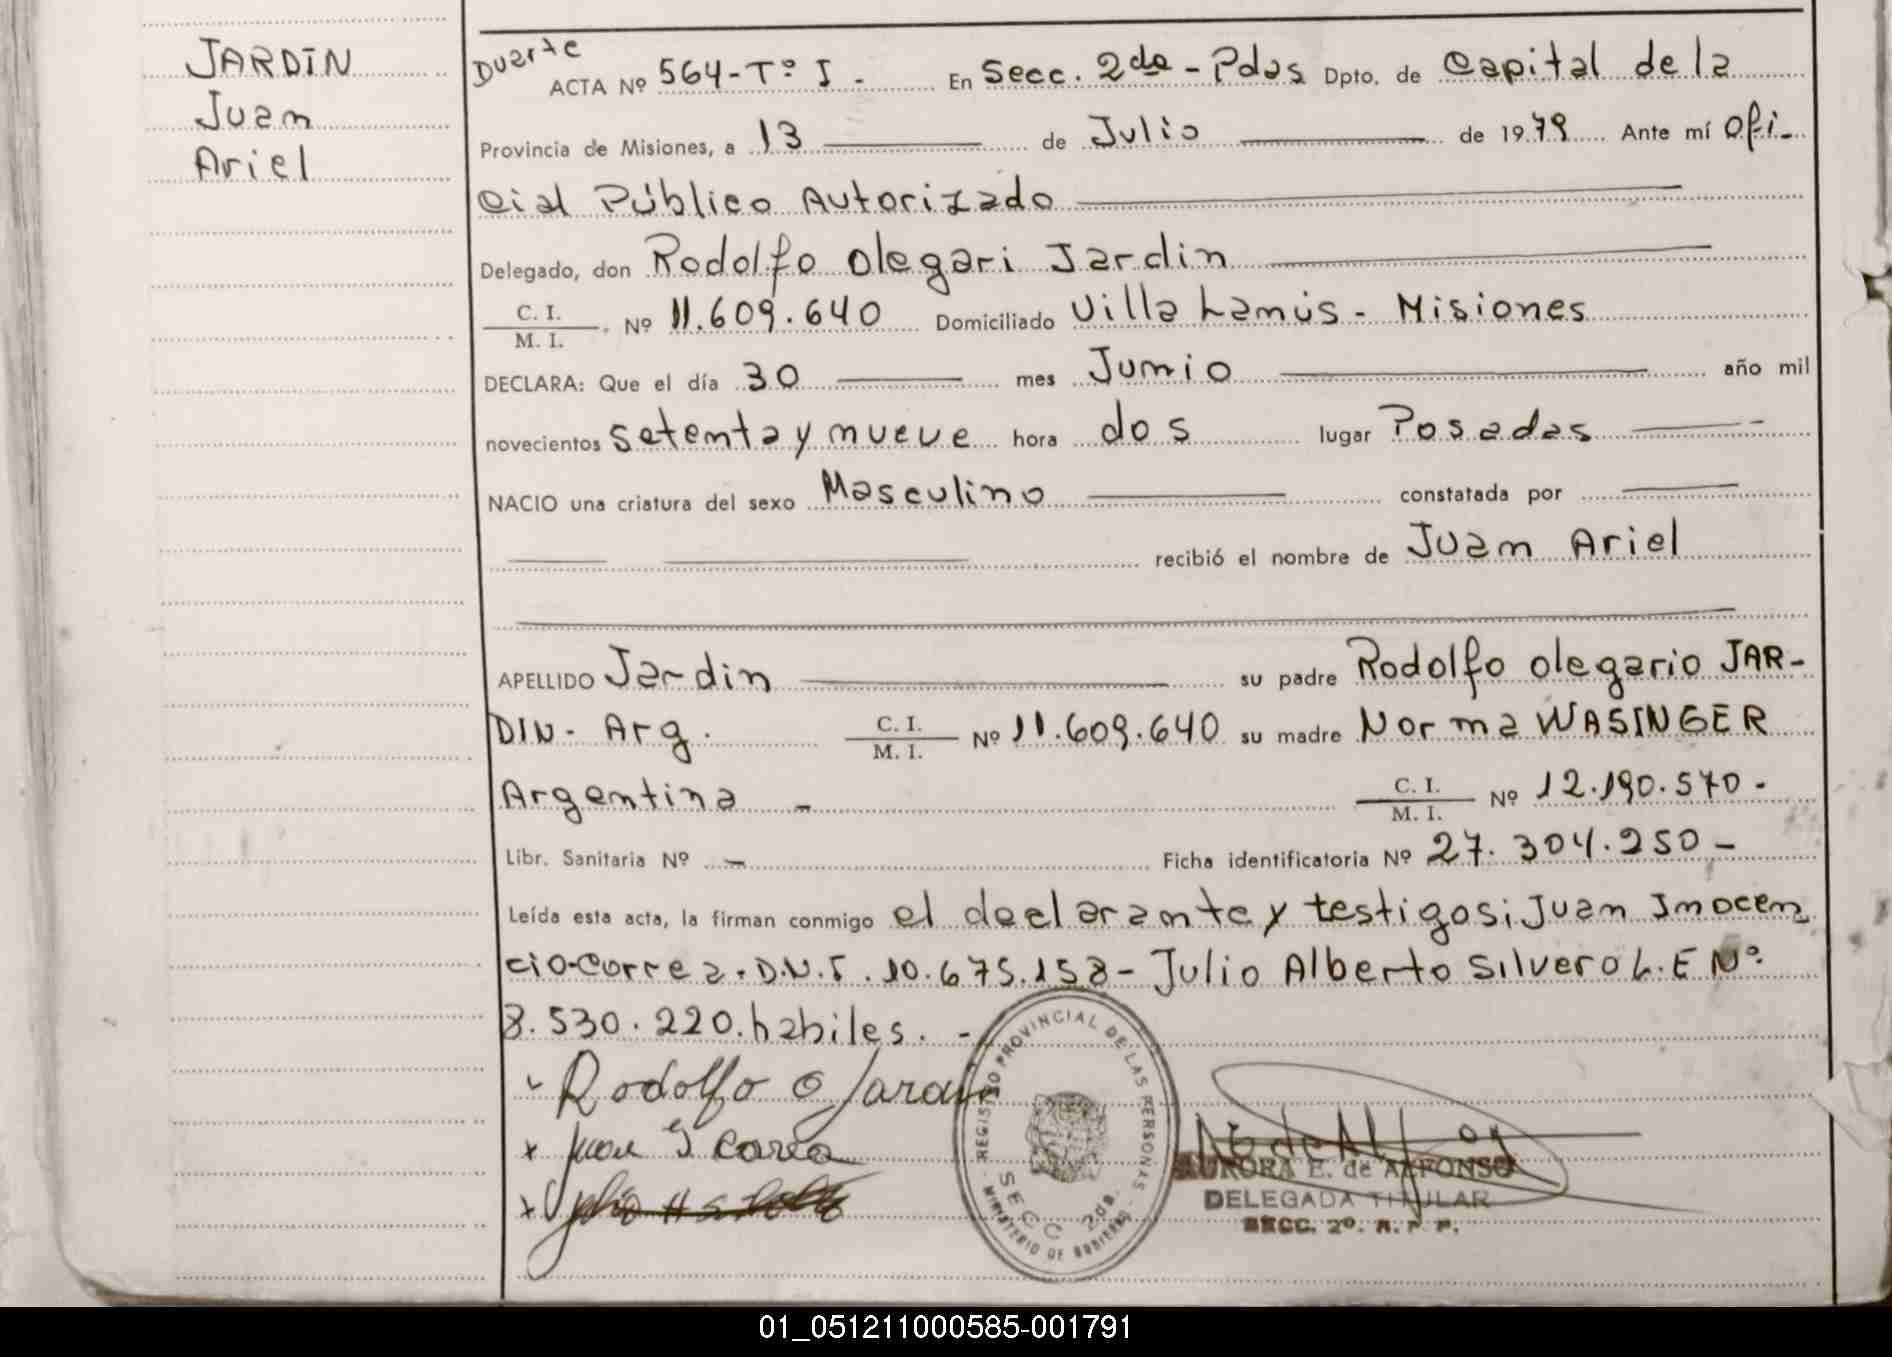 JARDIN
Juan
Ariel
Duarte
ACTA Nº 564-Tº I - En Secc. 2da - Pdas Dpto. de Capital de la
Provincia de Misiones, a 13 de Julio de 1979 Ante mí Ofi-
cial Público Autorizado
Delegado, don Rodolfo Olegari Jardin
C. I.
M. I. Nº 11.609.640 Domiciliado Villa Lanús - Misiones
DECLARA: Que el día 30 mes Junio año mil
novecientos setenta y nueve hora dos lugar Posadas
NACIO una criatura del sexo Masculino constatada por
recibió el nombre de Juan Ariel
APELLIDO Jardin su padre Rodolfo Olegario JAR-
DIN - Arg. C. I.
M. I. Nº 11.609.640 su madre Norma WASINGER
Argentina - C. I.
M. I. Nº 12.190.570 -
Libr. Sanitaria Nº - Ficha identificatoria Nº 27.304.250 -
Leída esta acta, la firman conmigo el declarante y testigos; Juan Inocen
cio Correa. D.N.I. 10.675.158 - Julio Alberto Silvero L.E Nº
8.530.220. habiles. -
Rodolfo O Jardin
Juan I Correa
REGISTRO PROVINCIAL DE LAS PERSONAS
MINISTERIO DE GOBIERNO
SECC. 2da.
AURORA E. de ALFONSO
DELEGADA TITULAR
SECC. 2º. R. P. P.
01_051211000585-001791